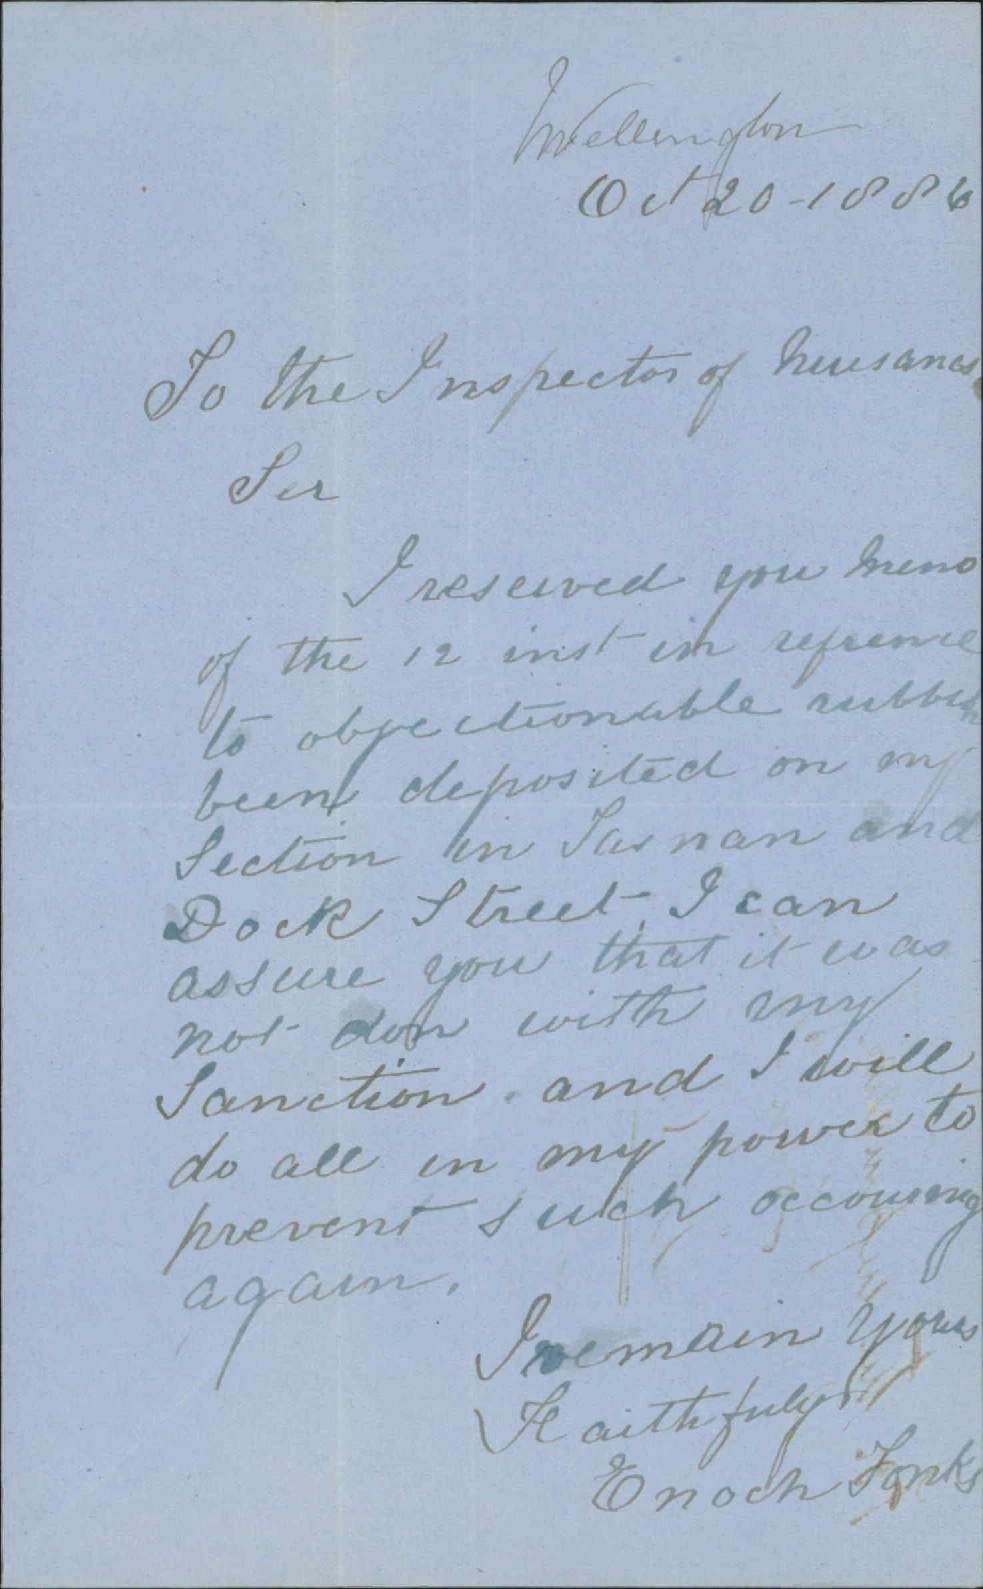 Wellington
Oct 20-1886
To the Inspector of Nuesances
Ser
I reseived you Memo
of the 12 inst in refrence
to objectionable rubbish
been deposited on my
Section in Tasman and
Dock Street. I can
assure you that it was
not don with my
Sanction. and I will
do all in my power to
prevent such occouring
again.
I remain Yours
Faithfuly
Enoch Tonks